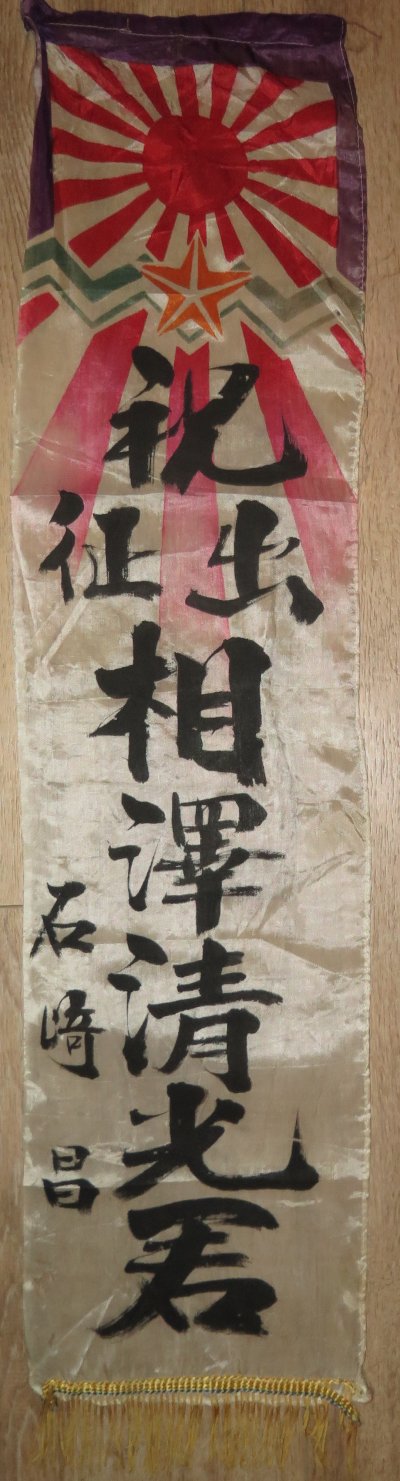 祝
出征
相澤清光君
石﨑昌